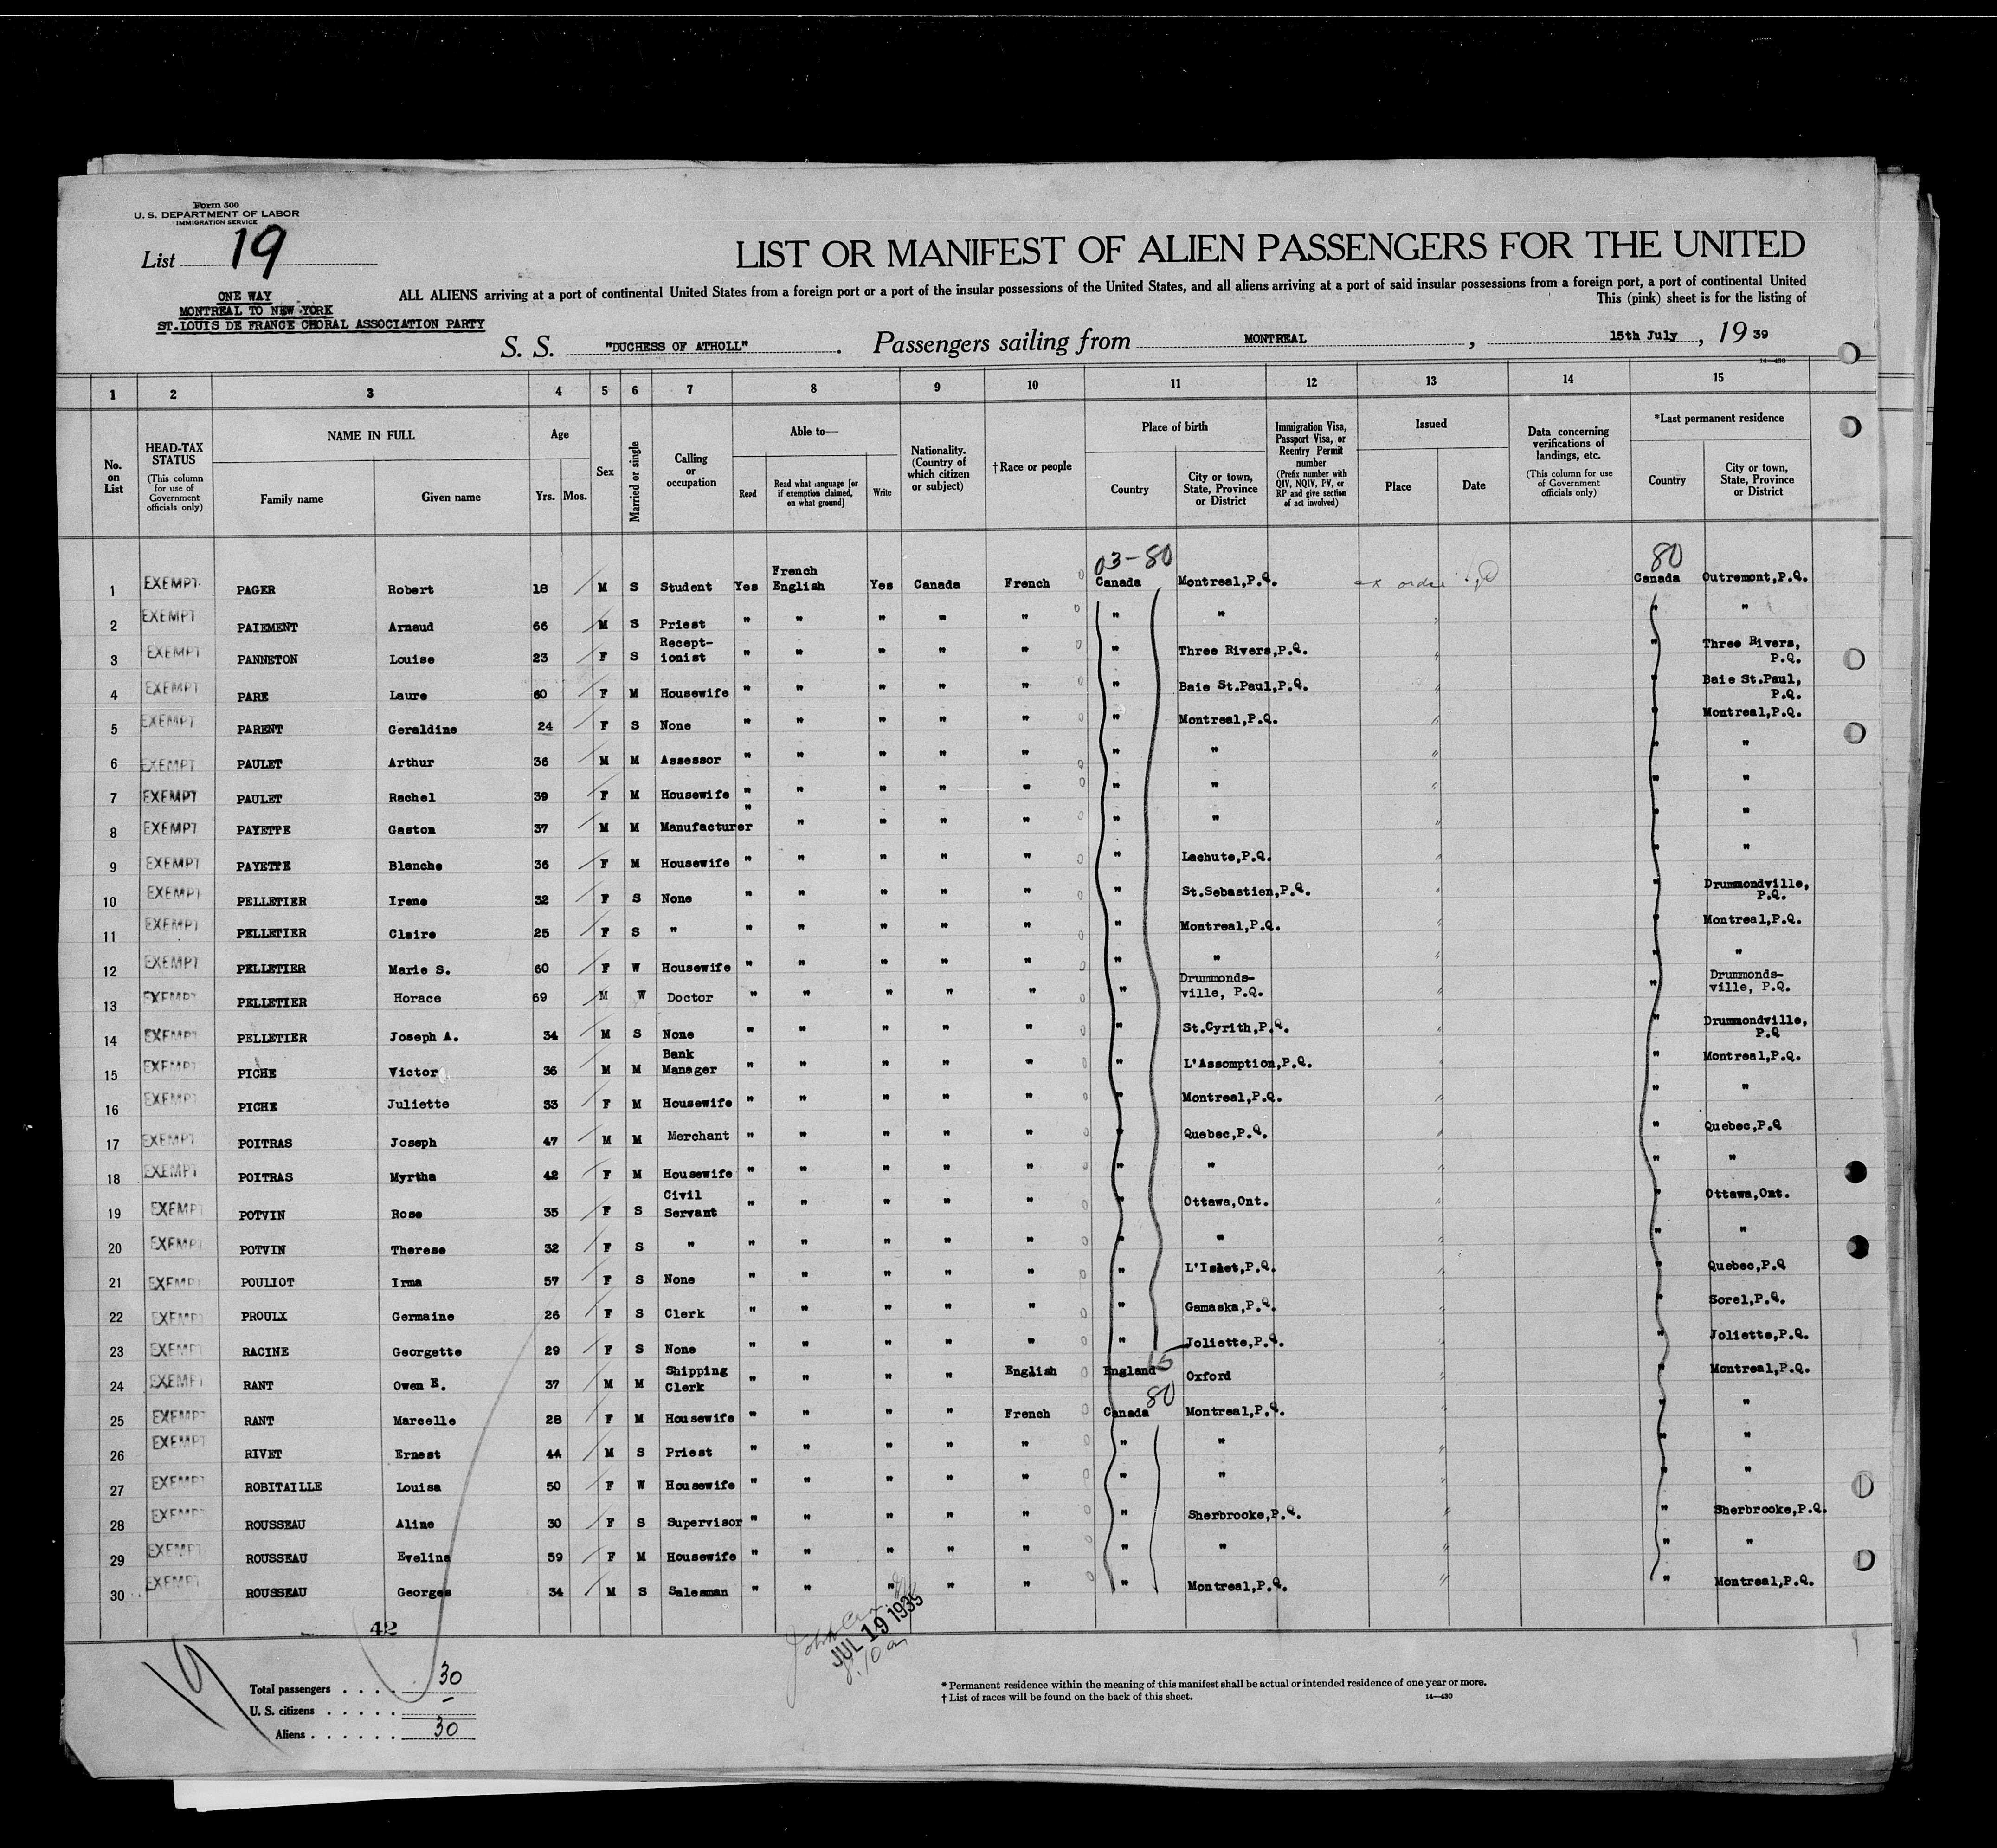 Form 500
U. S. DEPARTMENT OF LABOR
IMMIGRATION SERVICE
List 19
LIST OR MANIFEST OF ALIEN PASSENGERS FOR THE UNITED
ONE WAY
MONTREAL TO NEW YORK
ST.LOUIS DE FRANCE CHORAL ASSOCIATION PARTY
ALL ALIENS arriving at a port of continental United States from a foreign port or a port of the insular possessions of the United States, and all aliens arriving at a port of said insular possessions from a foreign port, a port of continental United
This (pink) sheet is for the listing of
S. S. "DUCHESS OF ATHOLL". Passengers sailing from MONTREAL, 15th July, 19 39
14—430
1 2 3 4 5 6 7 8 9 10 11 12 13 14 15
No. on List
HEAD-TAX STATUS (This column for use of Government officials only)
NAME IN FULL
Family name
Given name
Age
Yrs. Mos.
Sex
Married or single
Calling or occupation
Able to—
Read
Read what language [or if exemption claimed, on what ground]
Write
Nationality. (Country of which citizen or subject)
† Race or people
Place of birth
Country
City or town, State, Province or District
Immigration Visa, Passport Visa, or Reentry Permit number (Prefix number with QIV, NQIV, PV, or RP and give section of act involved)
Issued
Place
Date
Data concerning verifications of landings, etc. (This column for use of Government officials only)
*Last permanent residence
Country
City or town, State, Province or District
03-80 80
1 EXEMPT PAGER Robert 18 M S Student Yes French English Yes Canada French Canada Montreal,P.Q. Canada Outremont,P.Q.
2 EXEMPT PAIEMENT Arnaud 66 M S Priest " " " " " " " " "
3 EXEMPT PANNETON Louise 23 F S Recept-ionist " " " " " " Three Rivers,P.Q. " Three Rivers, P.Q.
4 EXEMPT PARE Laure 60 F M Housewife " " " " " " Baie St.Paul,P.Q. " Baie St.Paul, P.Q.
5 EXEMPT PARENT Geraldine 24 F S None " " " " " " Montreal,P.Q. " Montreal,P.Q.
6 EXEMPT PAULET Arthur 36 M M Assessor " " " " " " " " "
7 EXEMPT PAULET Rachel 39 F M Housewife " " " " " " " " "
8 EXEMPT PAYETTE Gaston 37 M M Manufacturer " " " " " " " " "
9 EXEMPT PAYETTE Blanche 36 F M Housewife " " " " " " Lachute,P.Q. " "
10 EXEMPT PELLETIER Irene 32 F S None " " " " " " St.Sebastien,P.Q. " Drummondville, P.Q.
11 EXEMPT PELLETIER Claire 25 F S " " " " " " " Montreal,P.Q. " Montreal,P.Q.
12 EXEMPT PELLETIER Marie S. 60 F W Housewife " " " " " " " " "
13 EXEMPT PELLETIER Horace 69 M W Doctor " " " " " " Drummonds-ville, P.Q. " Drummonds-ville, P.Q.
14 EXEMPT PELLETIER Joseph A. 34 M S None " " " " " " St.Cyrith,P.Q. " Drummondville, P.Q
15 EXEMPT PICHE Victor 36 M M Bank Manager " " " " " " L'Assomption,P.Q. " Montreal,P.Q.
16 EXEMPT PICHE Juliette 33 F M Housewife " " " " " " Montreal,P.Q. " "
17 EXEMPT POITRAS Joseph 47 M M Merchant " " " " " " Quebec,P.Q. " Quebec,P.Q
18 EXEMPT POITRAS Myrtha 42 F M Housewife " " " " " " " " "
19 EXEMPT POTVIN Rose 35 F S Civil Servant " " " " " " Ottawa,Ont. " Ottawa,Ont.
20 EXEMPT POTVIN Therese 32 F S " " " " " " " " " "
21 EXEMPT POULIOT Irma 57 F S None " " " " " " L'Islet,P.Q. " Quebec,P.Q
22 EXEMPT PROULX Germaine 26 F S Clerk " " " " " " Gamaska,P.Q. " Sorel,P.Q.
23 EXEMPT RACINE Georgette 29 F S None " " " " " " Joliette,P.Q. " Joliette,P.Q.
24 EXEMPT RANT Owen E. 37 M M Shipping Clerk " " " " English England 15 Oxford " Montreal,P.Q.
25 EXEMPT RANT Marcelle 28 F M Housewife " " " " French Canada 80 Montreal,P.Q. " "
26 EXEMPT RIVET Ernest 44 M S Priest " " " " " " " " "
27 EXEMPT ROBITAILLE Louisa 50 F W Housewife " " " " " " " " "
28 EXEMPT ROUSSEAU Aline 30 F S Supervisor " " " " " " Sherbrooke,P.Q. " Sherbrooke,P.Q.
29 EXEMPT ROUSSEAU Evelina 59 F M Housewife " " " " " " " " "
30 EXEMPT ROUSSEAU Georges 34 M S Salesman " " " " " " Montreal,P.Q. " Montreal,P.Q.
42
JUL 19 1935
19
Total passengers . . . . 30
U. S. citizens . . . . . –
Aliens . . . . . . 30
* Permanent residence within the meaning of this manifest shall be actual or intended residence of one year or more.
† List of races will be found on the back of this sheet.
14—430